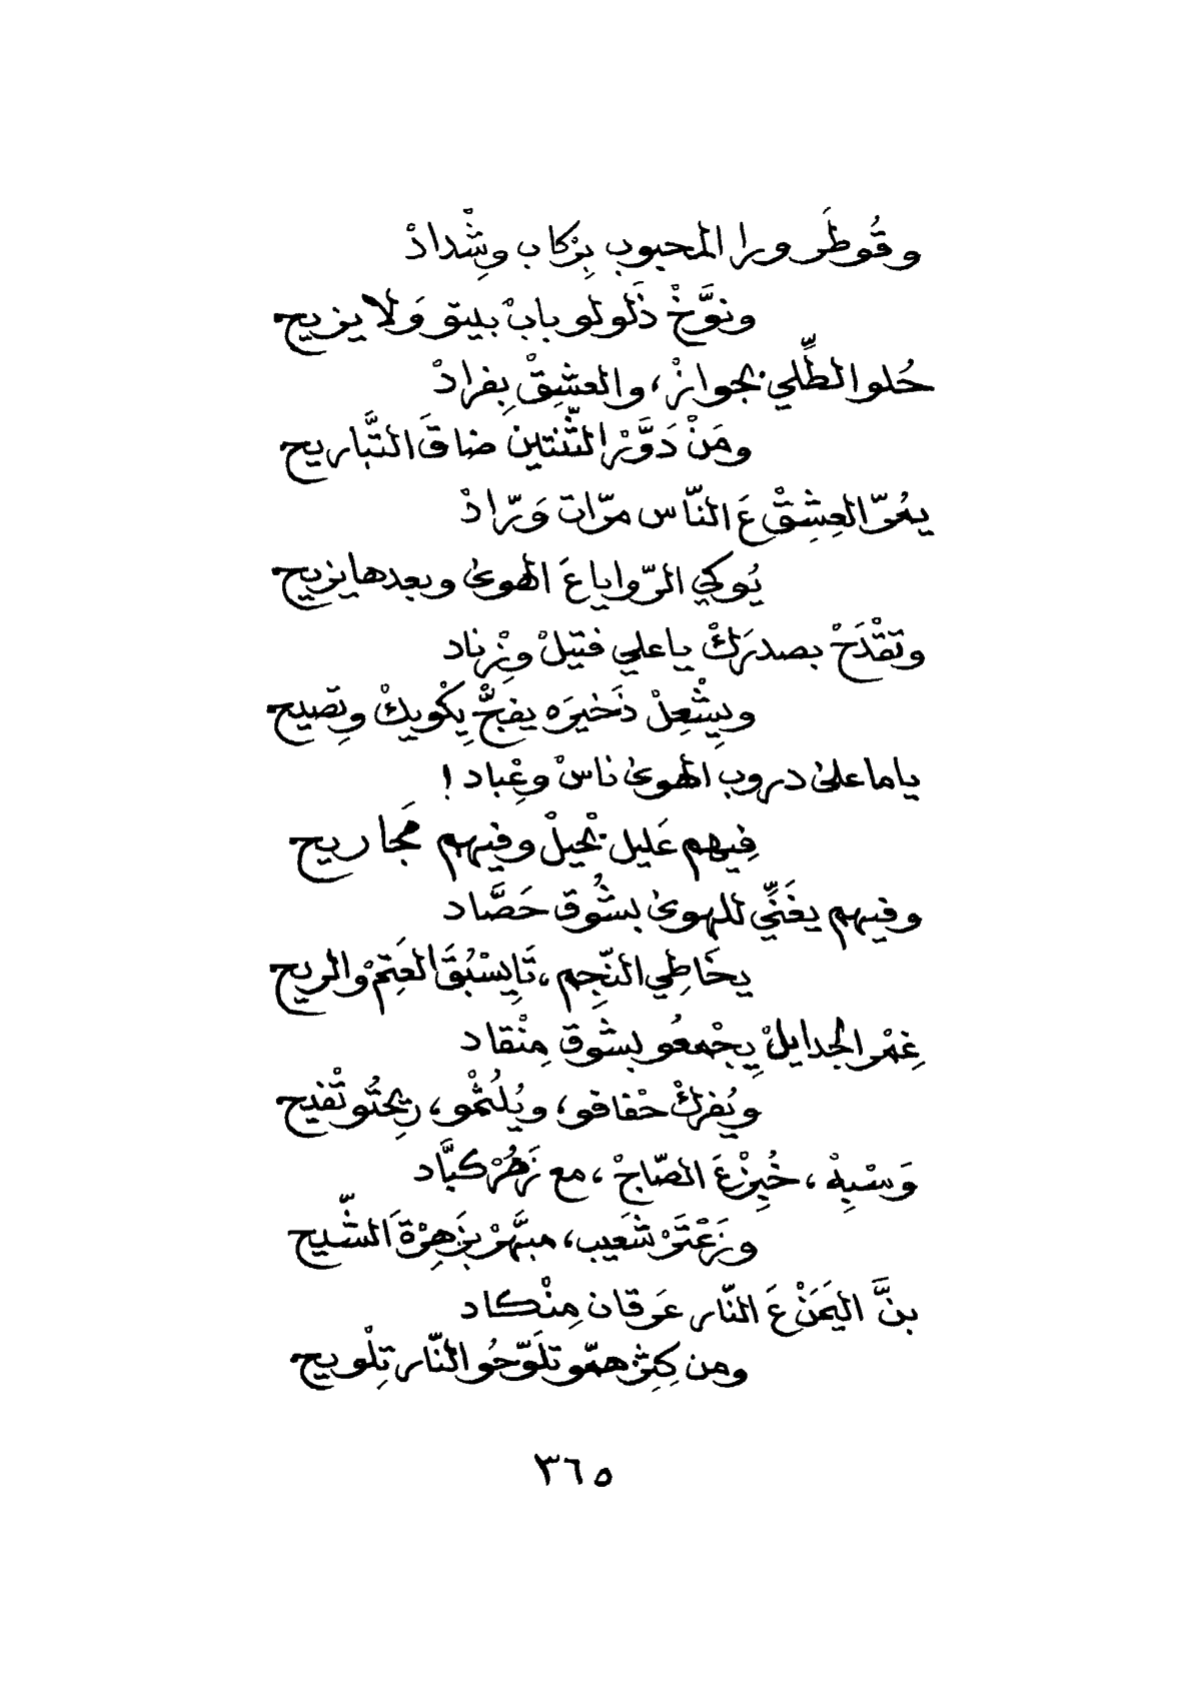 وقُوطَر ورا المحبوب بِرْكاب وشِْدادْ
ونوَّخْ ذَلولو بابْ بيتو وَلا يزيح
حُلو الطِّلي بجوازْ، والعشِقْ بِفرادْ
ومَنْ دَوَّرْ الثّنتينْ ضاقَ التَّباريح
يمُرّ العِشِقْ عَ النّاس مرّات وَرّادْ
يُوكي الرّوايا عَ الهوىٰ وبعدها يزيح
وتقْدَحْ بصدرَكْ يا علي فتيلْ وزْناد
وِيشْعِلْ ذَخيرَه يفجّْ يِكْويكْ وتصيح
ياما علىٰ دروب الهوىٰ ناسْ وعْباد !
فِيهم عَليل نْحيلْ وفيهم مَجاريح
وفيهم يغَنِّي للهوىٰ بشُوق حَصَّاد
يخَاطِي النّجِم، تَايِسْبُقَ العَتِمْ والريح
غِمْر الجدايلْ يِجْمعُو بشوق مِنْقاد
ويُفركْ حْفافو، ويُلْثُمْو، رِيحْتُو تْفيح
وَسْبِهْ، خُبِزْ عَ الصّاجْ، مع زَهْرْ كبَّاد
وزَعْتَرْ شعَيب، مبَهَّرْ بزَهِرْةَ الشّيح
بنَّ اليَمَنْ عَ النّار عَرقان مِنْكاد
ومن كِثِرْ همّو تلَوّحُو النّار تِلْويح
٣٦٥